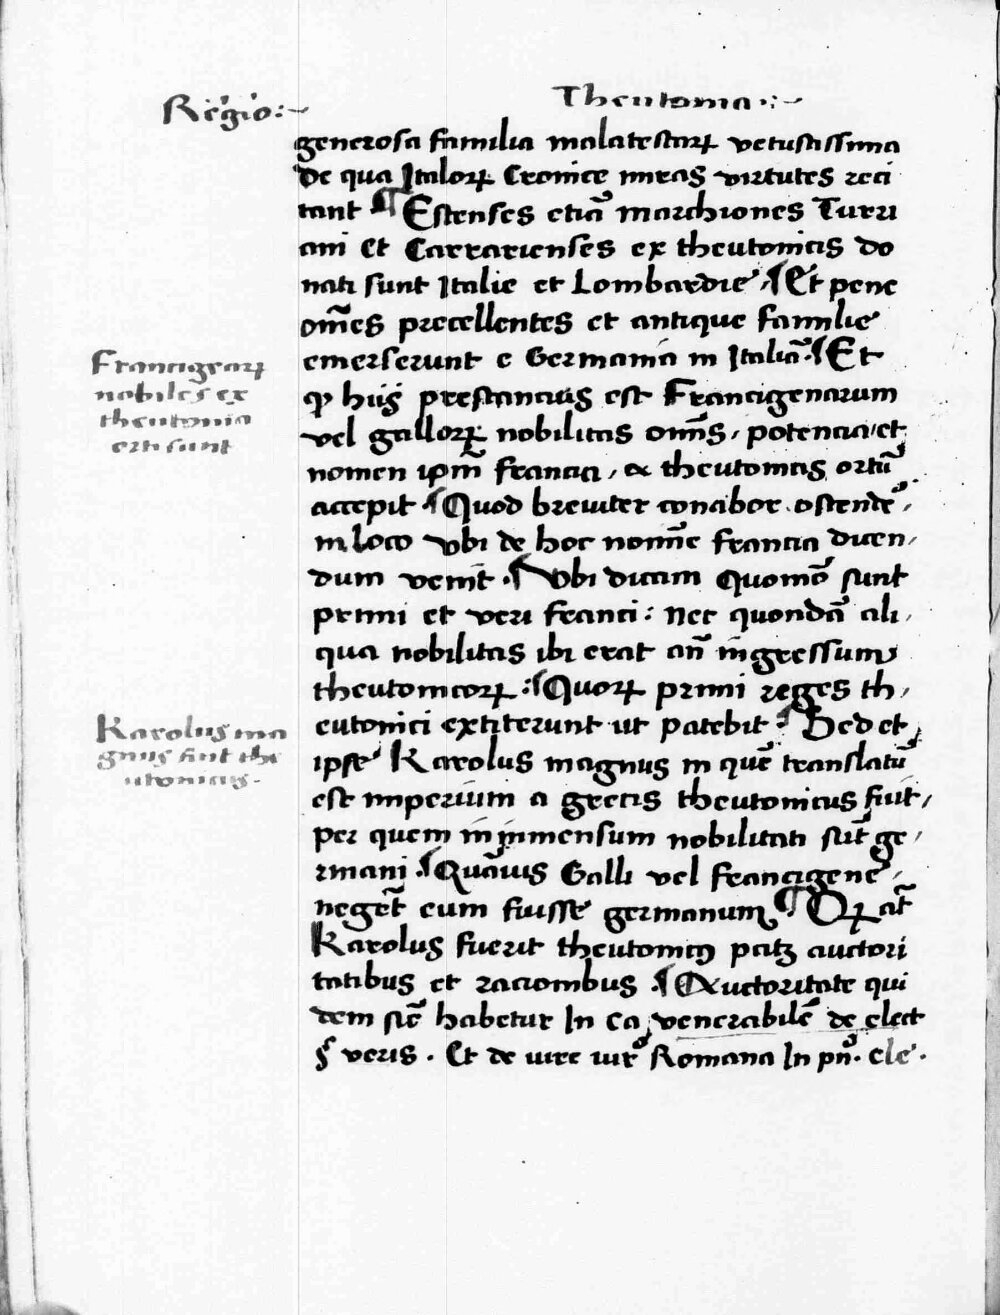 Regio:~ Theutonia.:~
generosa familia malatestarꝝ vetustissima
de qua Italorꝝ Cronice miras virtutes reci
tant ¶ Estenses etiā marchiones Turri
ani et Carrarienses ex theutonicis do
nati sunt Italie et Lombardie ¶ Et pene
om̄es precellentes et antique familie
emerserunt e Germania in Italiā ¶ Et
ꝙ hijs prestancius est Francigenarum
vel gallorꝝ nobilitas om̄s, potencia et
nomen ip̄m francia, ex theutonicis ortū
accepit ¶ Quod breviter conabor ostendē
in loco vbi de hoc nomīe francia dicen,
dum venit̄ . ¶ Vbi dicam Quomō sunt
primi et veri franci: nec quondā ali,
qua nobilitas ibi erat an̄ īgressum
theutonicorꝝ: ¶ Quorꝝ primi reges th,
eutonici extiterunt ut patebit ¶ Sed et,
ipse Karolus magnus in quē translatū
est imperium a grecis theutonicus fuit,
per quem in inmensum nobilitati sūt ge,
rmani . ¶ Quāuis Galli vel francigene,
negēt eum fuisse germanum ¶ Qꝝ at̄
Karolus fuerit theutonicꝰ patꝫ auctori
tatibus et racionibus . ¶ Auctoritate qui
dem sic̄ habetur In ca, venerabilē de elect
§ veris . Et de iure Romana In pn̄. cle .
Francigenarꝝ
nobiles ex
theutonia
orti sunt
Karolus ma
gnus fuit the
utonicus.